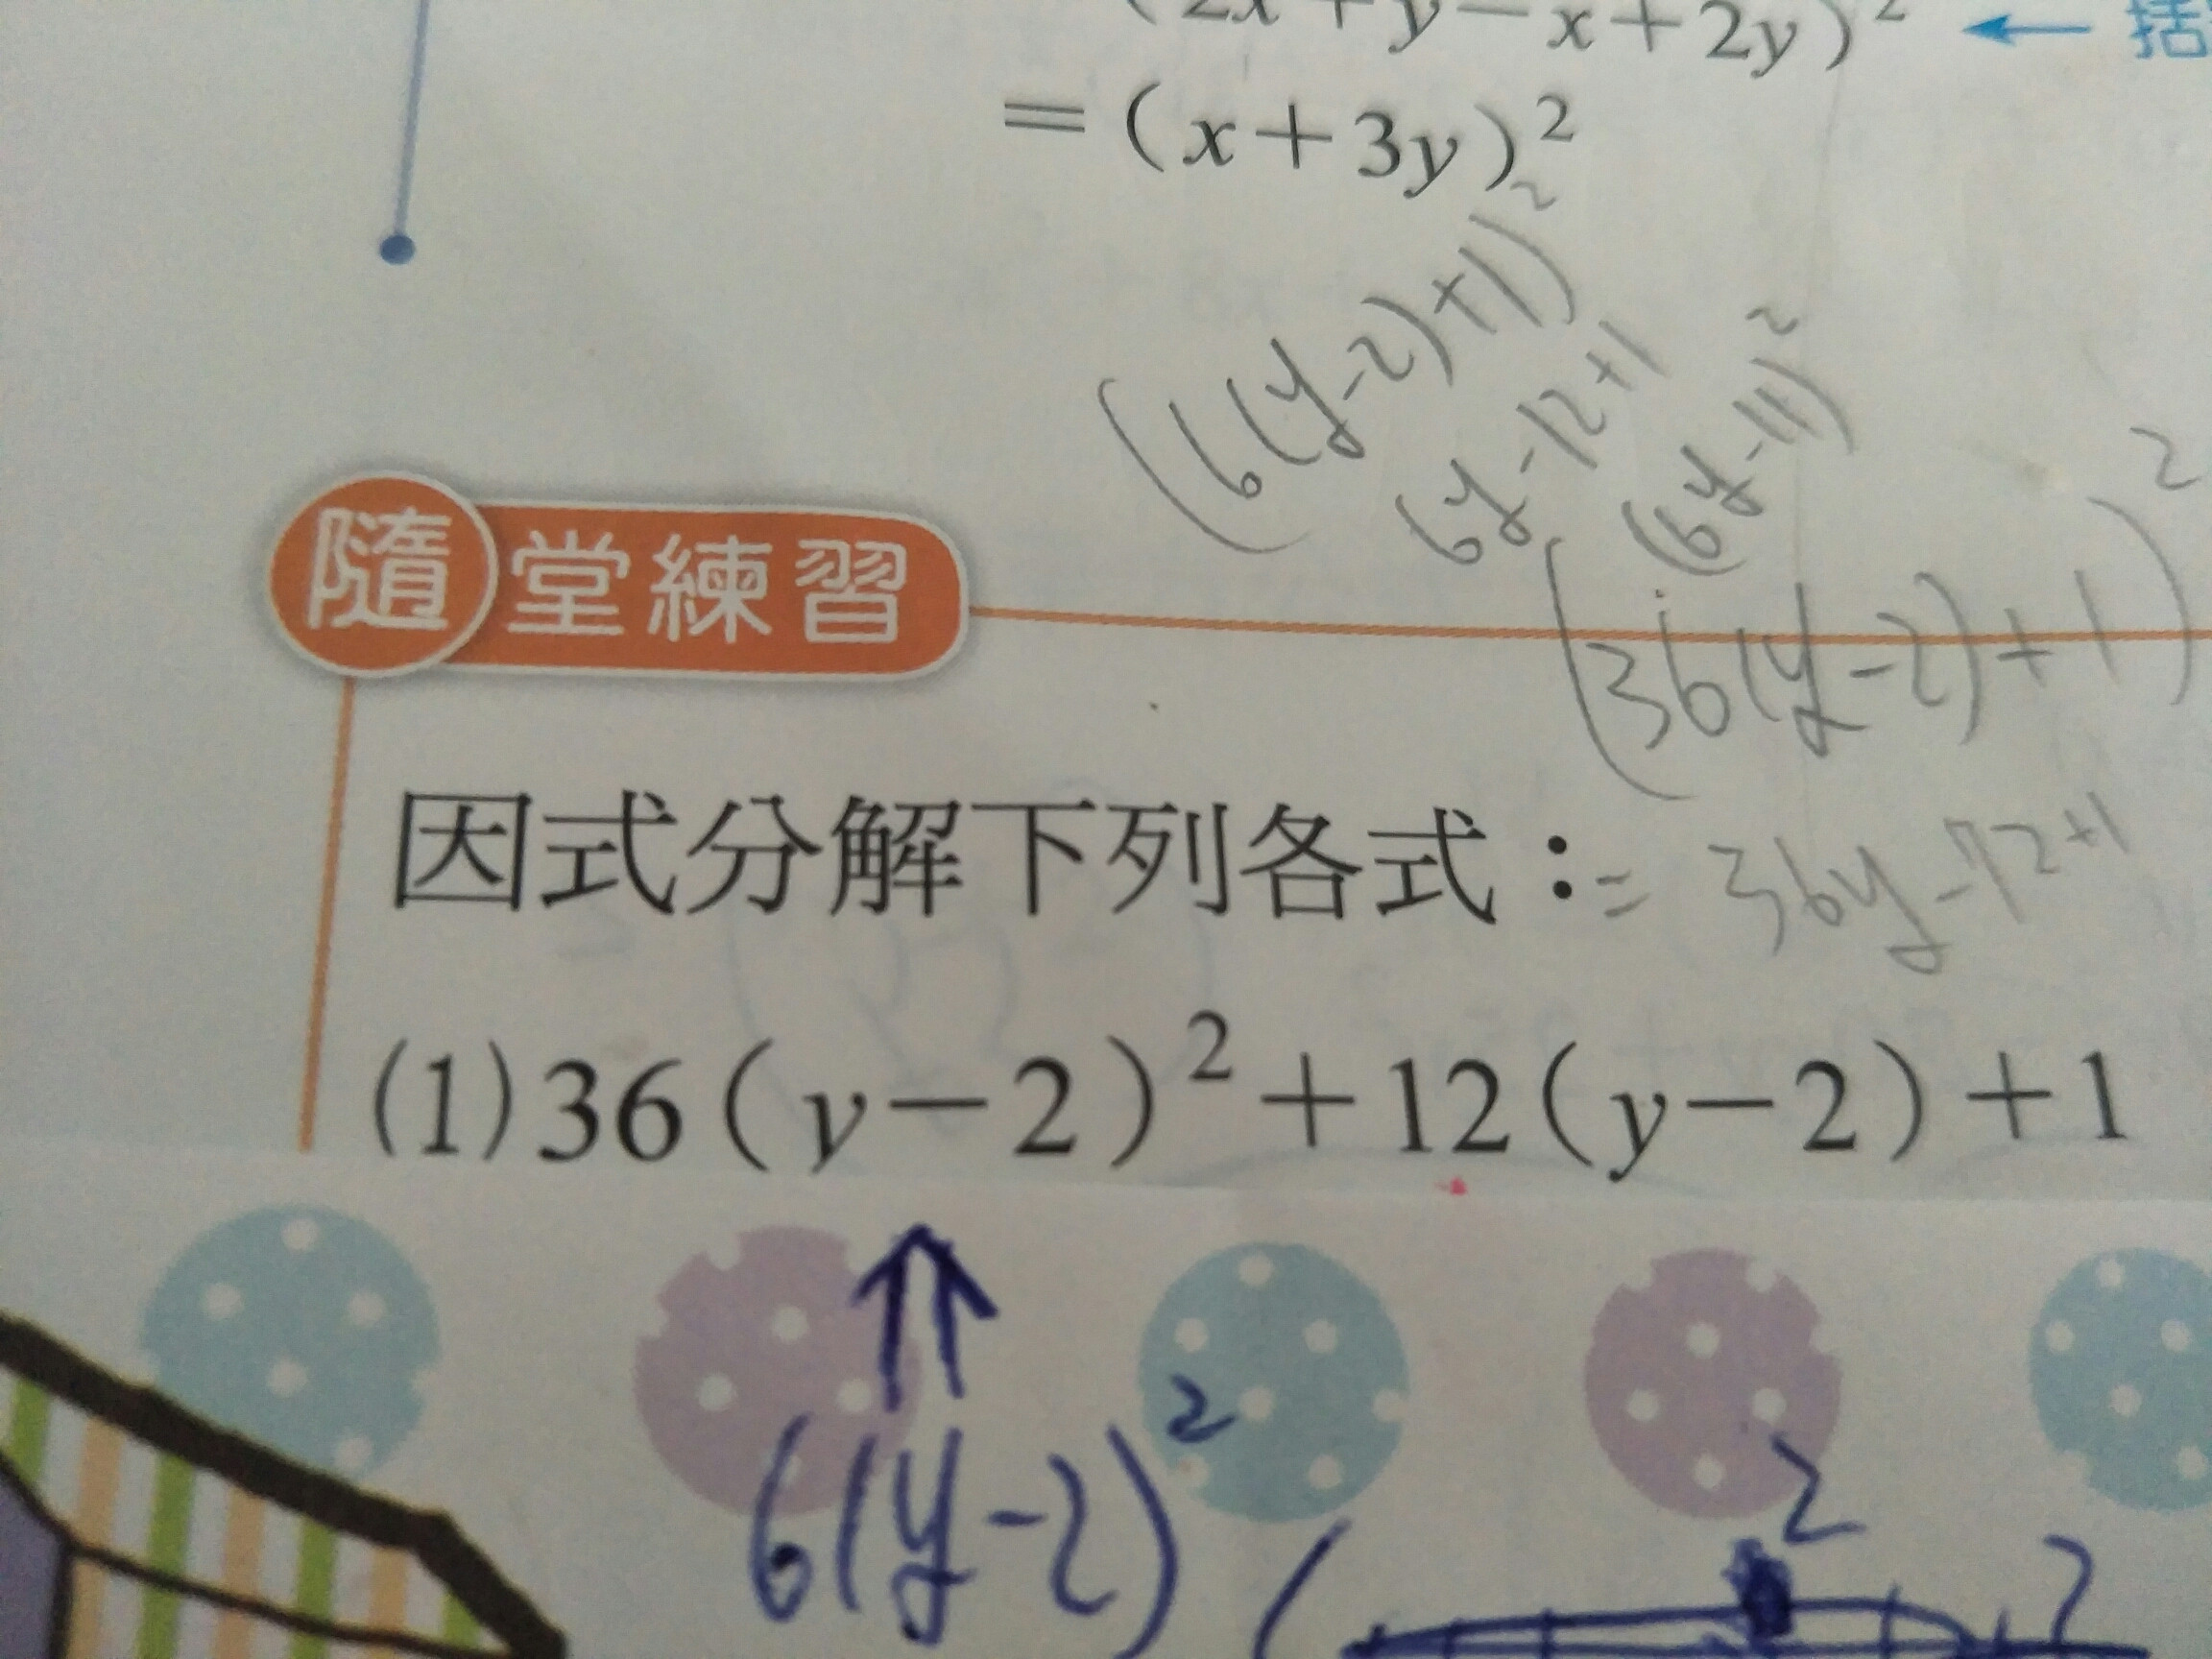 (2x+y-x+2y)² ← 括
=(x+3y)²
(6(y-2)+1)²
6y-12+1
(6y-11)²
隨堂練習
(36(y-2)+1)²
因式分解下列各式：
= 36y-72+1
(1)36(y-2)²+12(y-2)+1
6(y-2)²